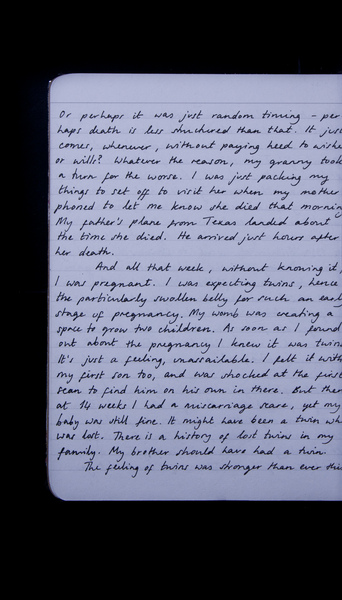 Or perhaps it was just random timing - per
haps death is less structured than that. It just
comes, whenever, without paying heed to wishe
or wills? Whatever the reason, my granny took
a turn for the worse. I was just packing my
things to set off to visit her when my mother
phoned to let me know she died that morning
My father's plane from Texas landed about
the time she died. He arrived just hours after
her death.
And all that week, without knowing it,
I was pregnant. I was expecting twins, hence
the particularly swollen belly for such an early
stage of pregnancy. My womb was creating a
space to grow two children. As soon as I found
out about the pregnancy I knew it was twins
It's just a feeling, unassailable. I felt it with
my first son too, and was shocked at the first
scan to find him on his own in there. But then
at 14 weeks I had a miscarriage scare, yet my
baby was still fine. It might have been a twin wh
was lost. There is a history of lost twins in my
family. My brother should have had a twin.
The feeling of twins was stronger than ever this